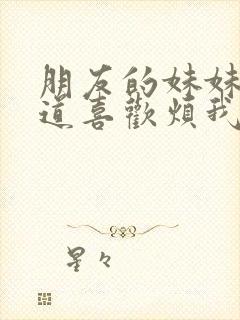 朋友的妹妹
道喜歡煩我
星々